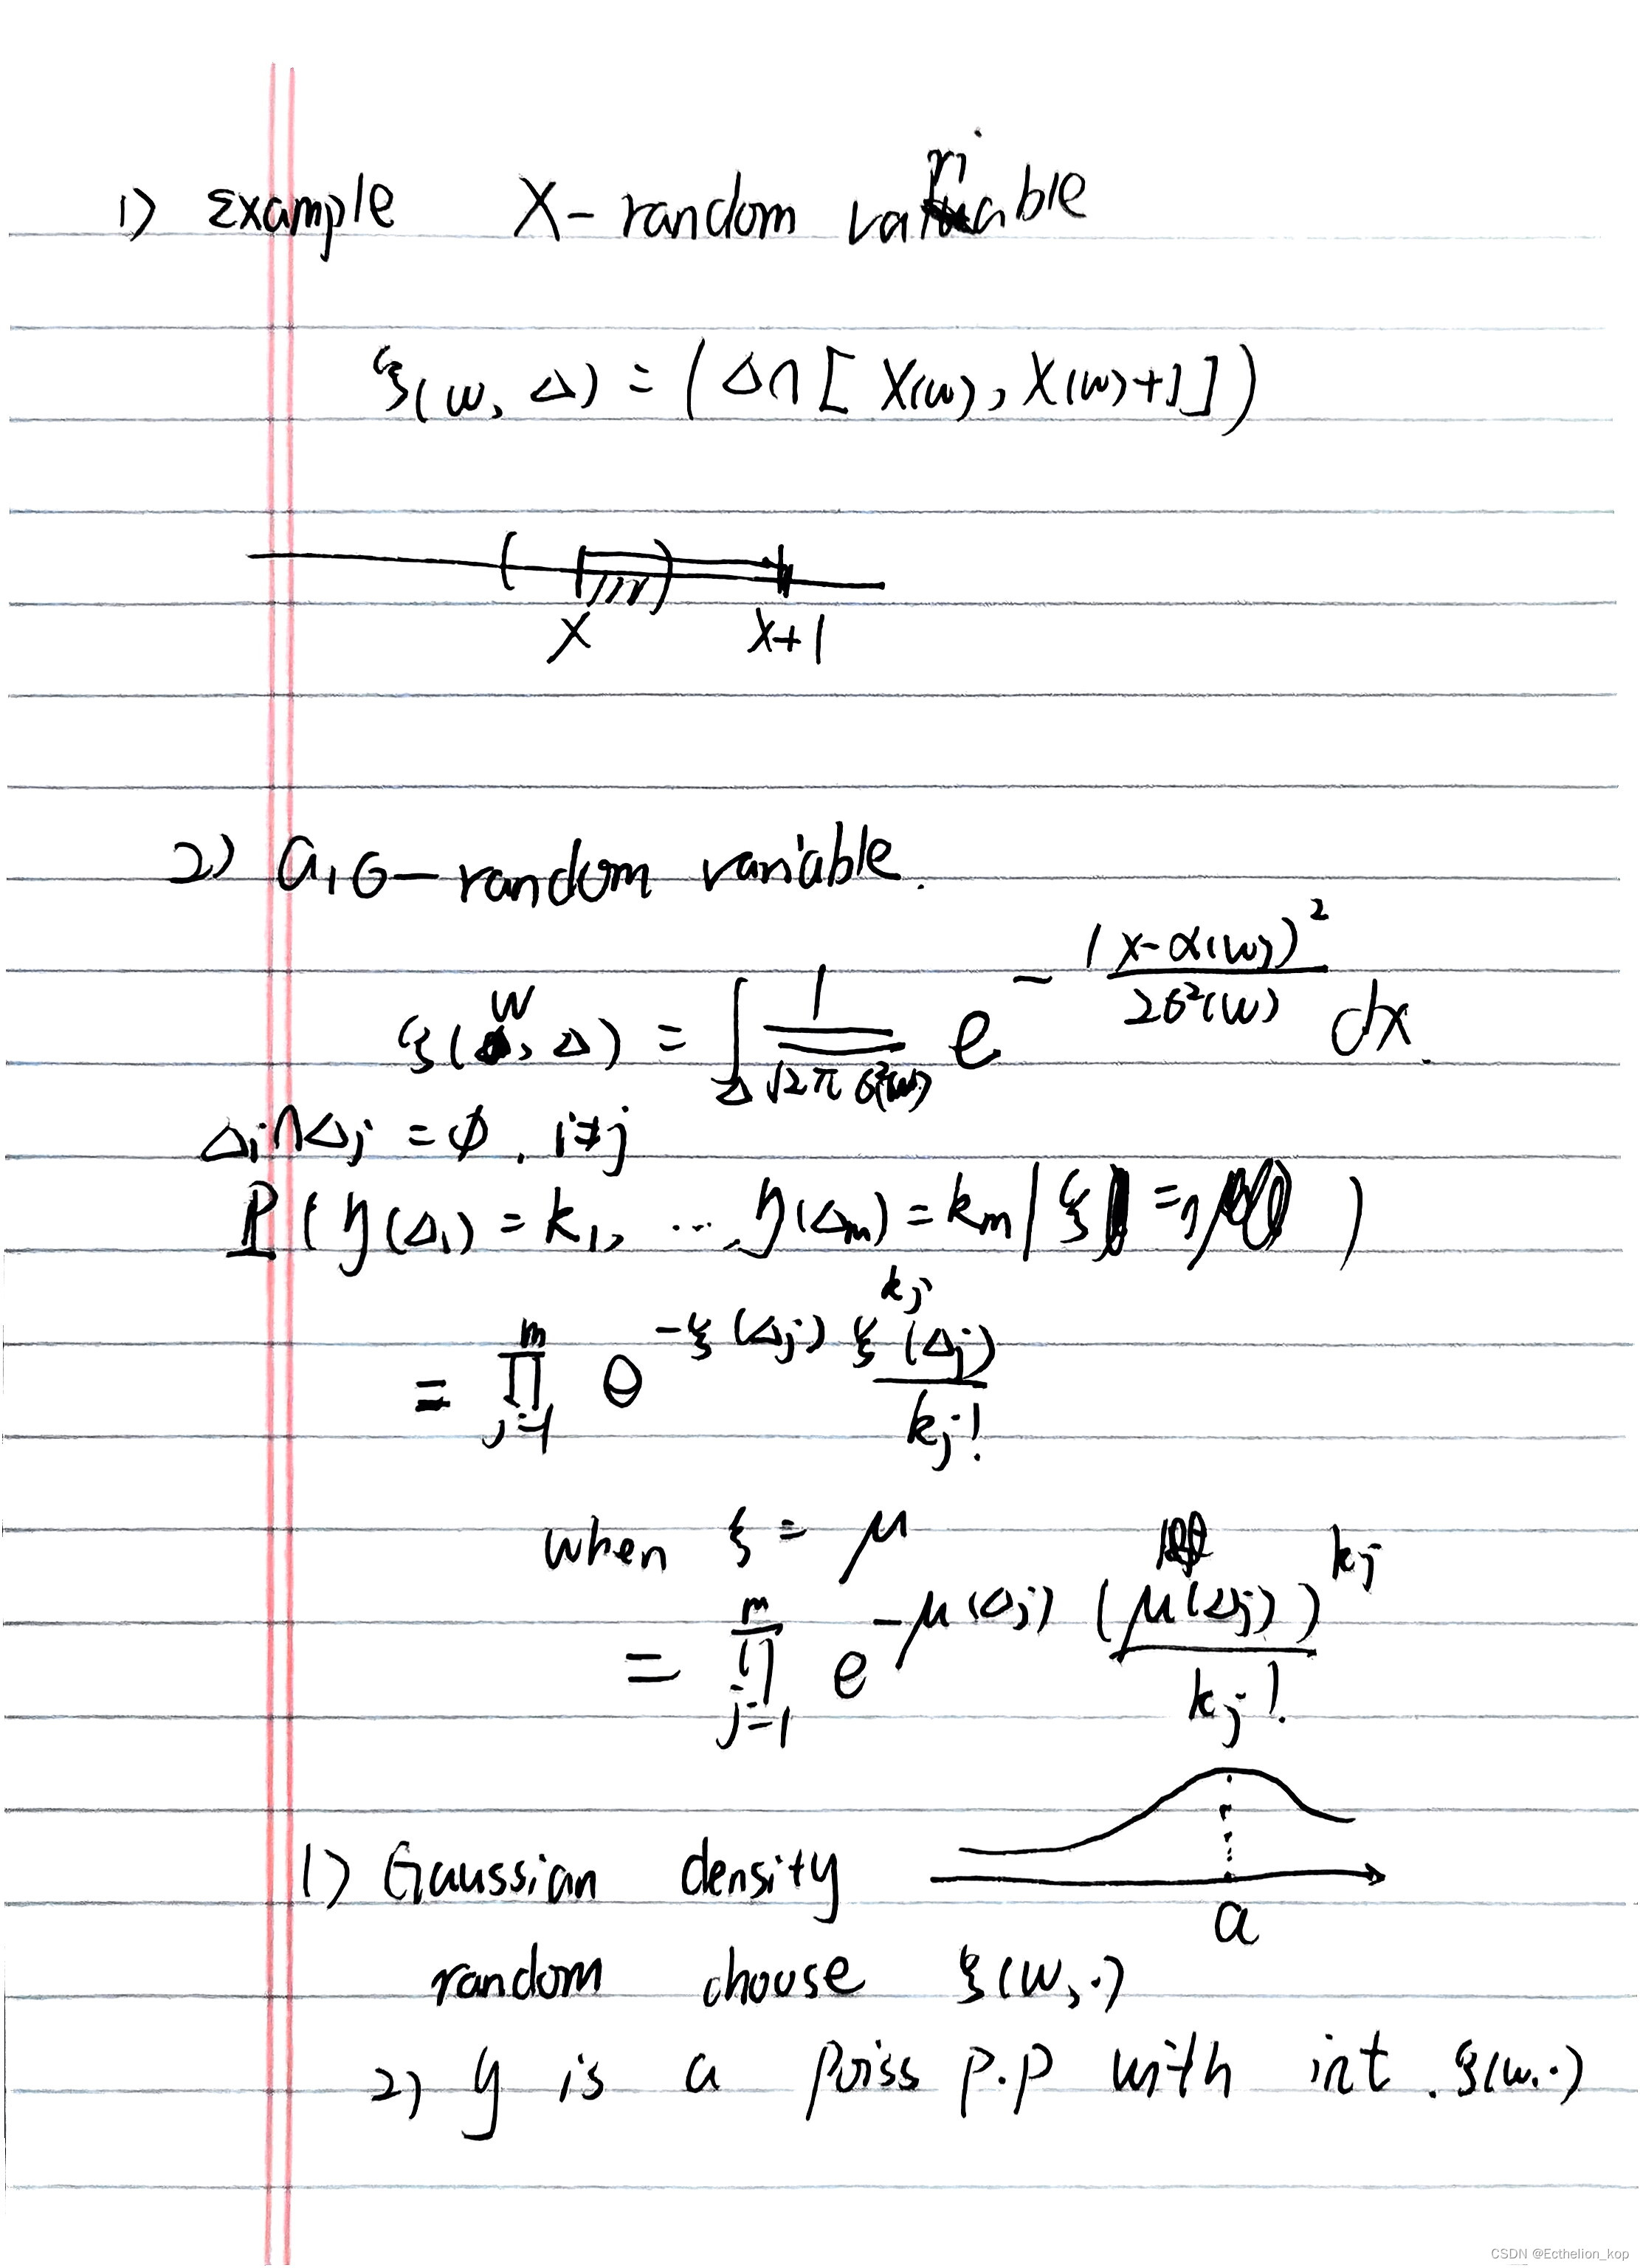 1) Example X - random variable
ξ(w, Δ) = (Δ∩[X(w), X(w)+1])
X X+1
2) a, σ - random variable.
ξ(w, Δ) = ∫_Δ 1/√(2π σ²(w)) e^{-(x-α(w))²/(2σ²(w))} dx.
Δi∩Δj = ∅, i≠j
P(η(Δ₁) = k₁, ..., η(Δm) = km | ξ = )
= ∏_{j=1}^{m} e^{-ξ(Δj)} ξ^{kj}(Δj)/kj!
when ξ = μ
= ∏_{j=1}^{m} e^{-μ(Δj)} (μ(Δj))^{kj}/kj!
1) Gaussian density
a
random choose ξ(w, ·)
2) y is a poiss p.p with int. ξ(w, ·)
CSDN @Ecthelion_kop